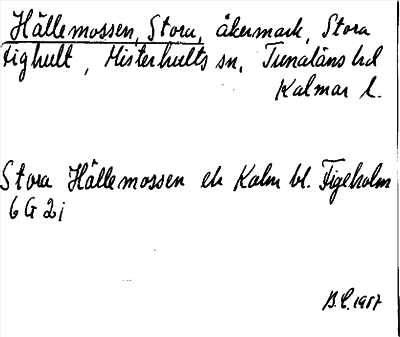 Hällemossen, Stora, åkermark, Stora
Fighult, Misterhults sn, Tunaläns hd
Kalmar l.
Stora Hällemossen ek Kalm bl. Figeholm
6 G 2 i
B.C. 1987